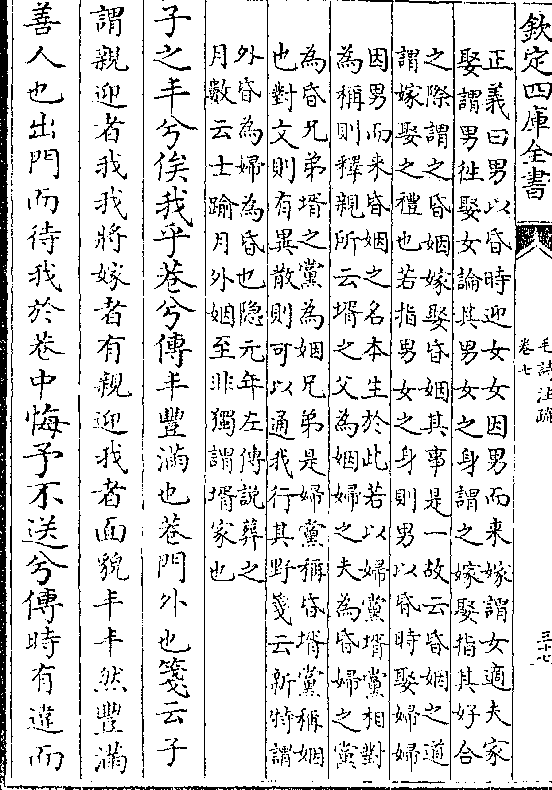 欽定四庫全書
毛詩注疏
卷七
三十七
正義曰男以昏時迎女女因男而来嫁謂女適夫家
娶謂男徃娶女論其男女之身謂之嫁娶指其好合
之際謂之昏姻嫁娶昏姻其事是一故云昏姻之道
謂嫁娶之禮也若指男女之身則男以昏時娶婦婦
因男而来昏姻之名本生於此若以婦黨壻黨相對
為稱則釋親所云壻之父為姻婦之夫為昏婦之黨
為昏兄弟壻之黨為姻兄弟是婦黨稱昏壻黨稱姻
也對文則有異散則可以通我行其野箋云新特謂
外昏為婦為昏也隠元年左傳説葬之
月數云士踰月外姻至非獨謂壻家也
子之丰兮俟我乎巷兮傳丰豐滿也巷門外也箋云子
謂親迎者我我將嫁者有親迎我者面貌丰丰然豐滿
善人也出門而待我於巷中悔予不送兮傳時有違而